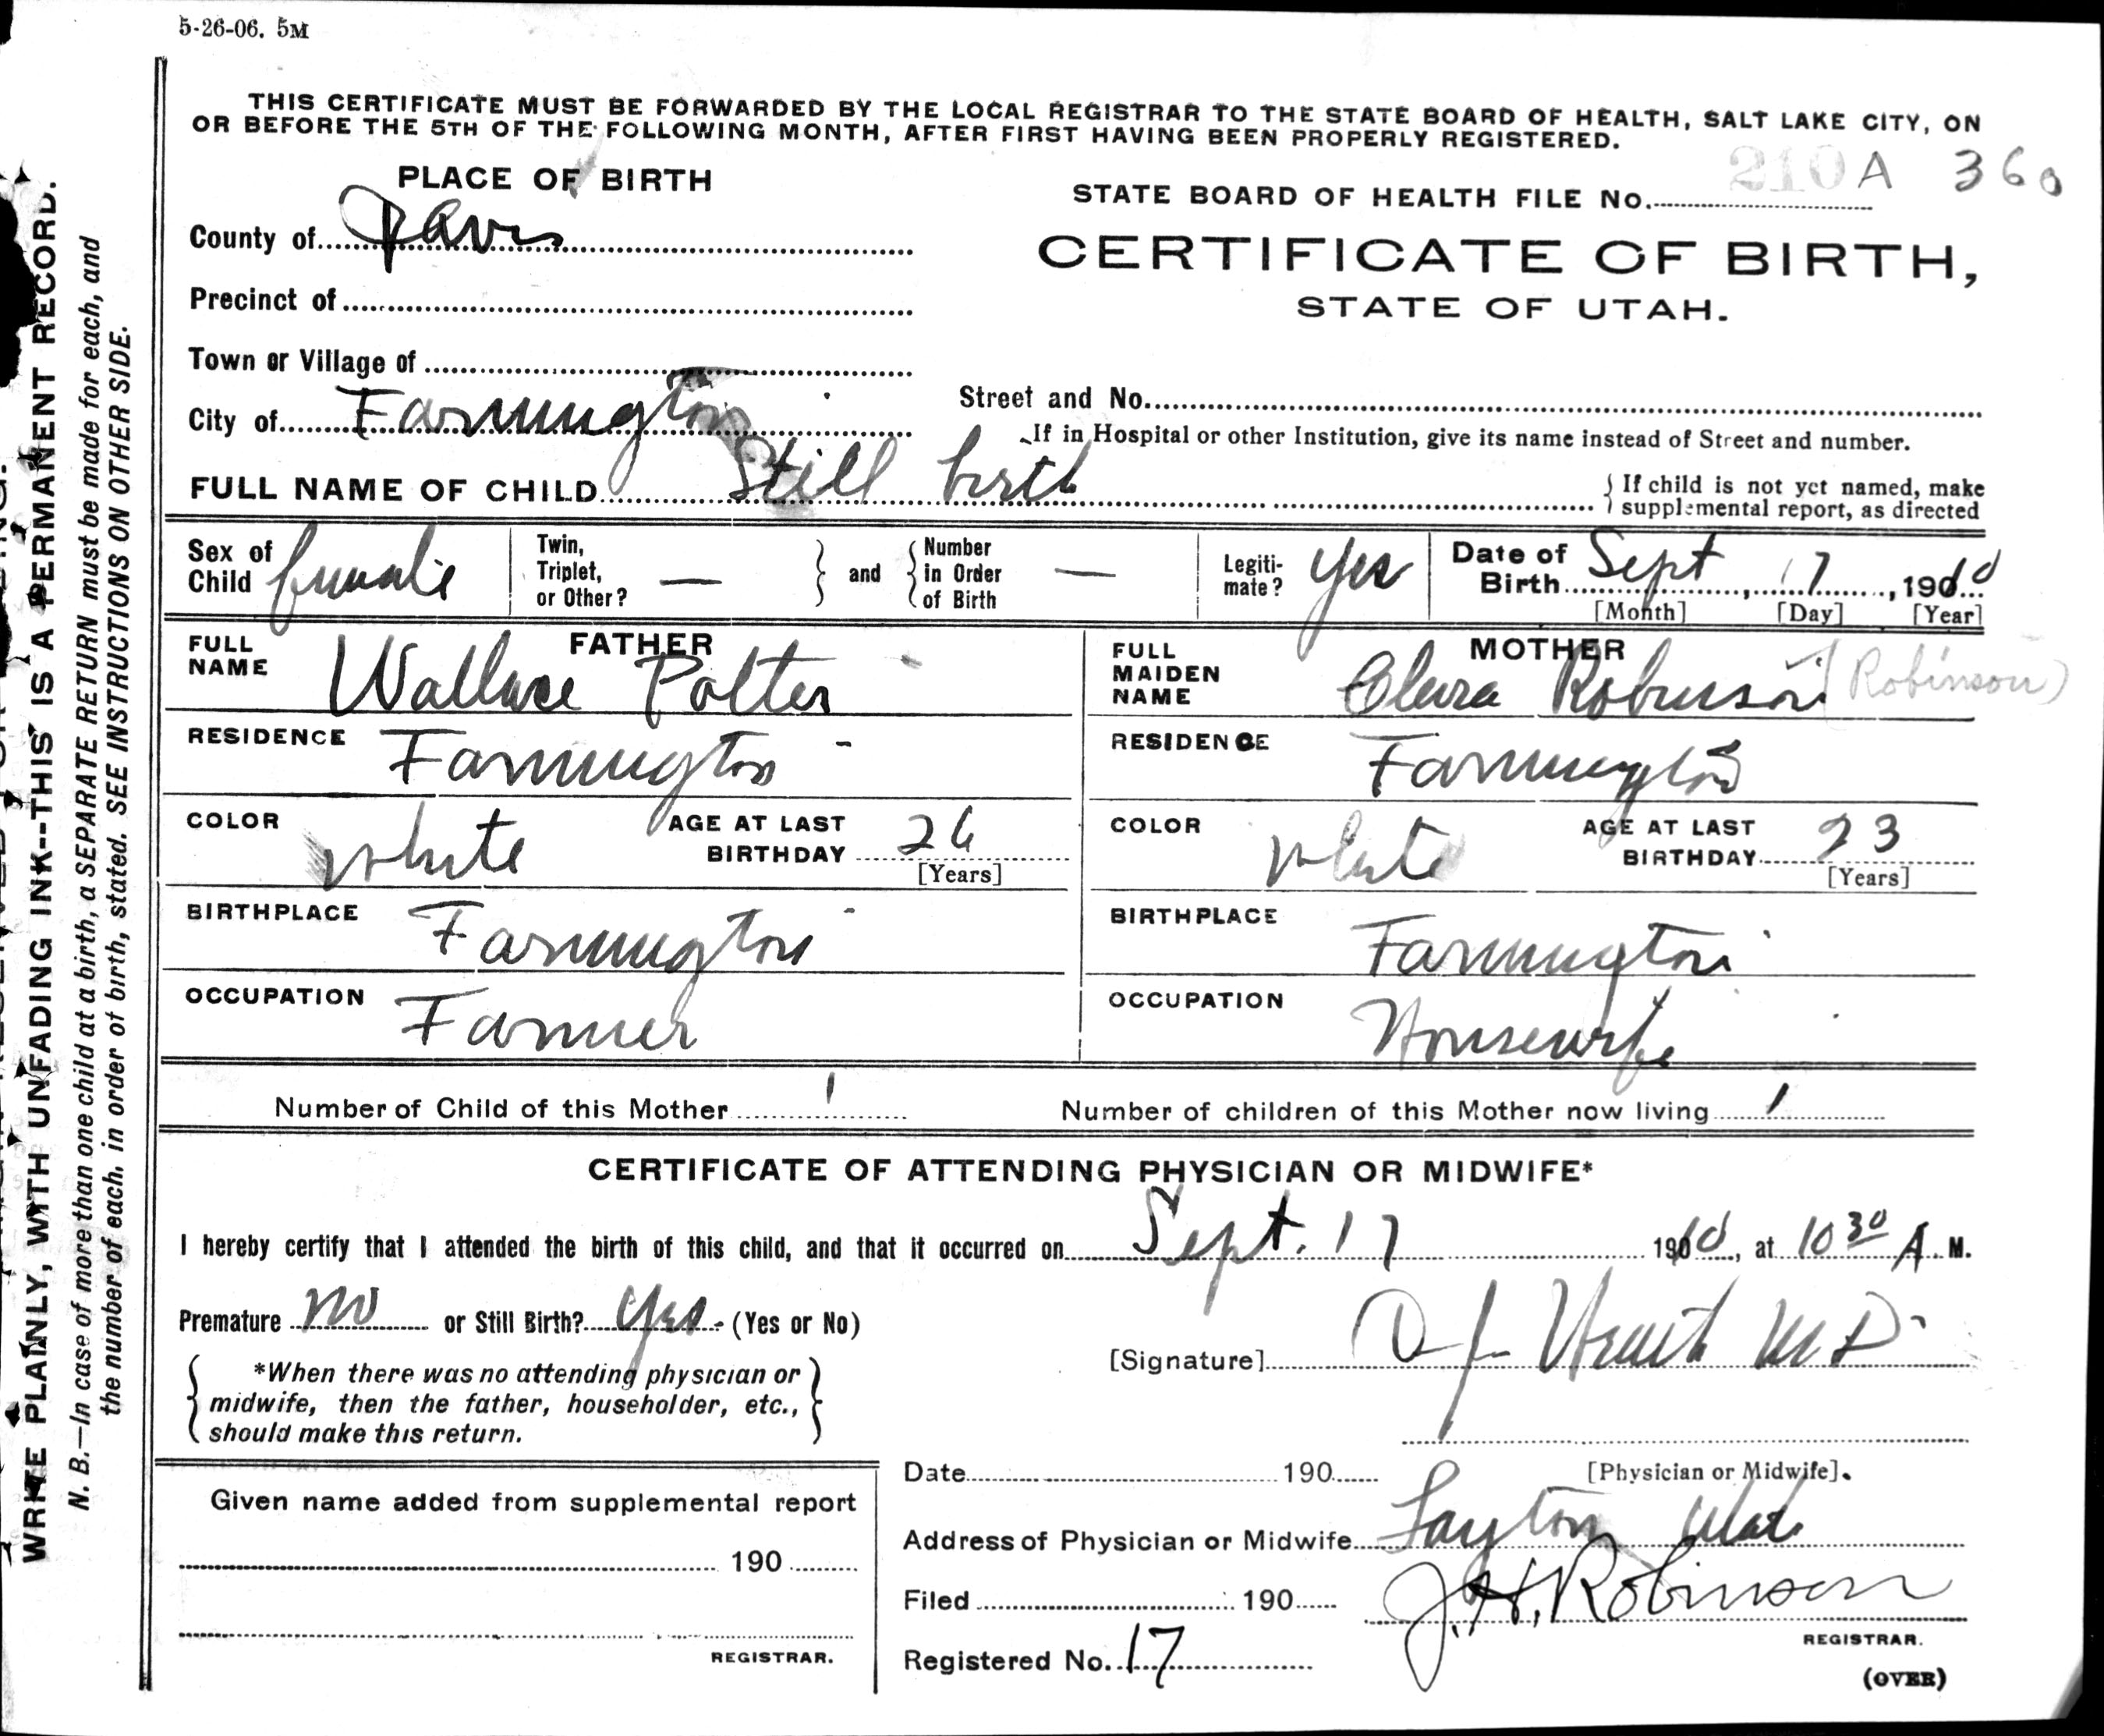 5-26-06. 5M
THIS CERTIFICATE MUST BE FORWARDED BY THE LOCAL REGISTRAR TO THE STATE BOARD OF HEALTH, SALT LAKE CITY, ON
OR BEFORE THE 5TH OF THE FOLLOWING MONTH, AFTER FIRST HAVING BEEN PROPERLY REGISTERED.
PLACE OF BIRTH
STATE BOARD OF HEALTH FILE No. 210 A 360
County of Davis
CERTIFICATE OF BIRTH,
STATE OF UTAH.
Precinct of
Town or Village of
City of Farmington
Street and No.
If in Hospital or other Institution, give its name instead of Street and number.
FULL NAME OF CHILD Still birth
If child is not yet named, make
supplemental report, as directed
Sex of Child female
Twin, Triplet, or Other? —
and
Number in Order of Birth —
Legiti-mate? Yes
Date of Birth Sept 17, 1910
[Month] [Day] [Year]
FATHER
FULL NAME Wallace Potter
RESIDENCE Farmington
COLOR white
AGE AT LAST BIRTHDAY 26
[Years]
BIRTHPLACE Farmington
OCCUPATION Farmer
MOTHER
FULL MAIDEN NAME Clara Robinson (Robinson)
RESIDENCE Farmington
COLOR White
AGE AT LAST BIRTHDAY 23
[Years]
BIRTHPLACE Farmington
OCCUPATION Housewife
Number of Child of this Mother 1
Number of children of this Mother now living 1
CERTIFICATE OF ATTENDING PHYSICIAN OR MIDWIFE*
I hereby certify that I attended the birth of this child, and that it occurred on Sept. 17 1910, at 10 30 A. M.
Premature no or Still Birth? Yes (Yes or No)
*When there was no attending physician or
midwife, then the father, householder, etc.,
should make this return.
[Signature] M D
[Physician or Midwife].
Date 190
Address of Physician or Midwife Layton Utah
Filed 190
J. H. Robinson
REGISTRAR.
Registered No. 17
(OVER)
Given name added from supplemental report
190
REGISTRAR.
WRITE PLAINLY, WITH UNFADING INK--THIS IS A PERMANENT RECORD.
N. B.—In case of more than one child at a birth, a SEPARATE RETURN must be made for each, and
the number of each, in order of birth, stated. SEE INSTRUCTIONS ON OTHER SIDE.